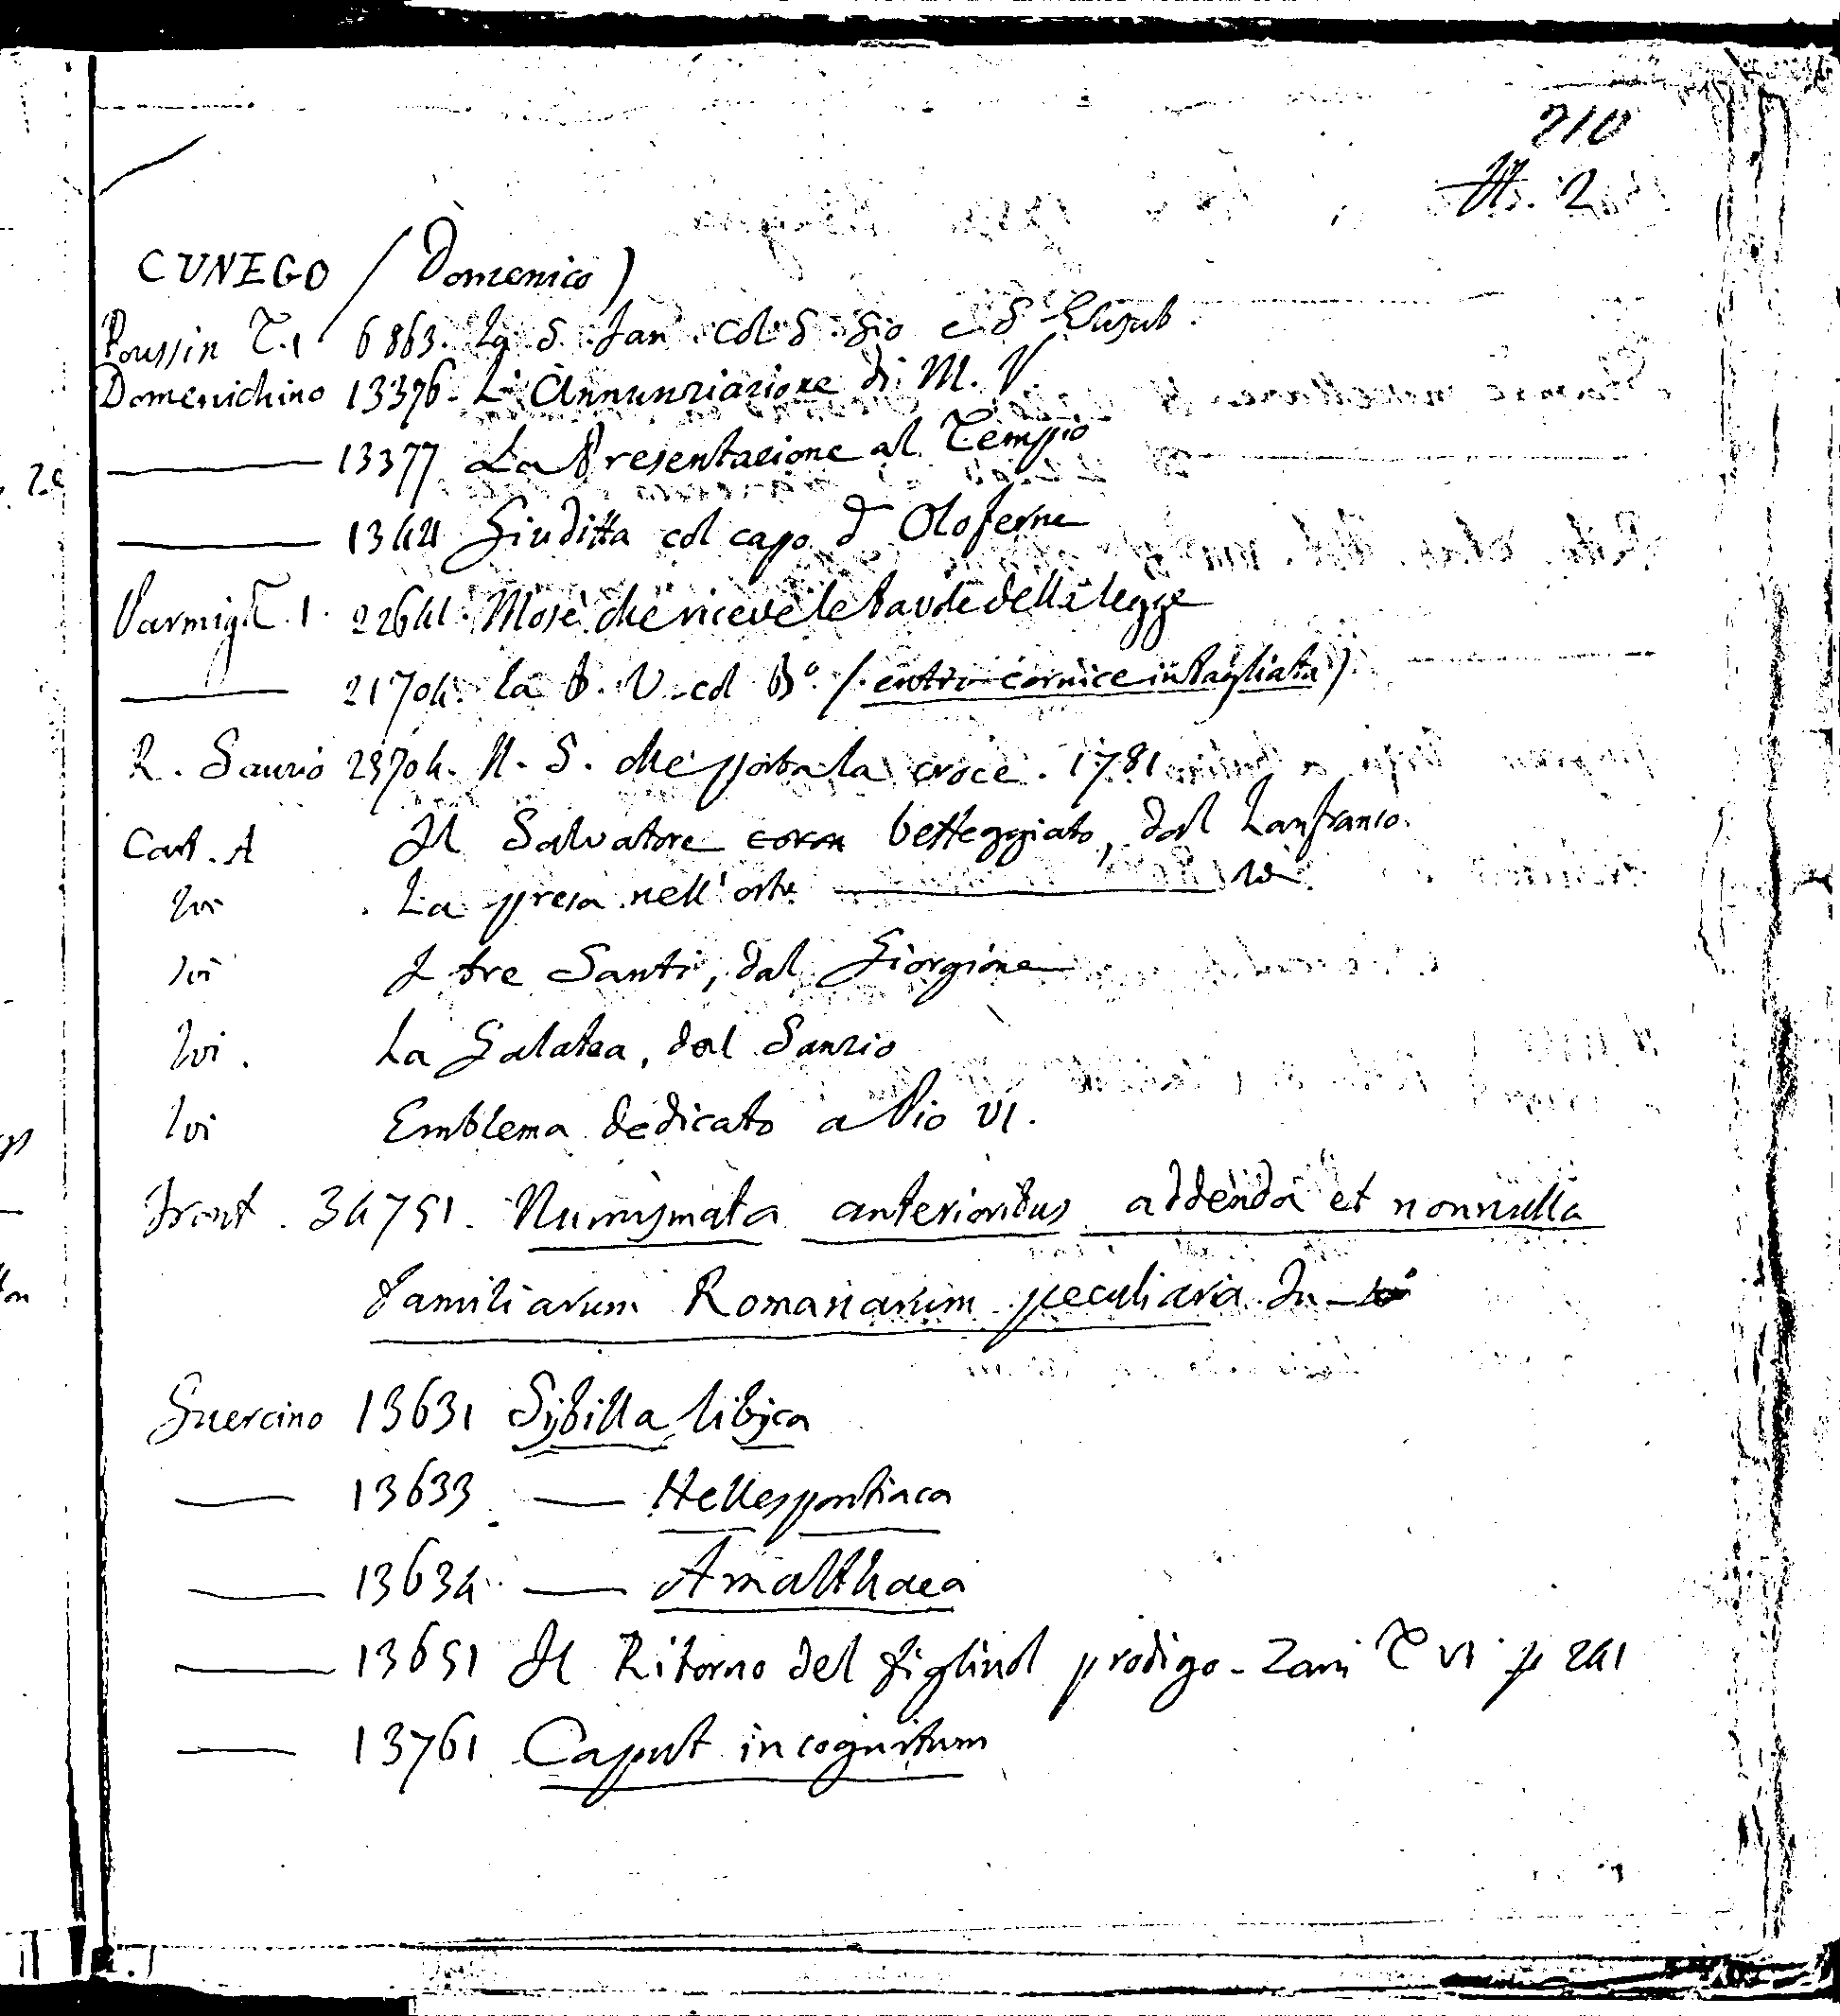 210
N. 2
CUNEGO (Domenico)
Poussin T. 1 6863. La S. Fam. col S. Gio e S. Elisab.
Domenichino 13376. L'Annunziazione di M. V.
——— 13377 La Presentazione al Tempio
——— 13421 Giuditta col capo d Oloferne
Parmig. T. 1. 22641. Mosè che riceve le tavole della legge
——— 21704. la B. V. col Bº. (entro cornice intagliata)
R. Sanzio 23704. N. S. che porta la croce. 1781
Cart. A Il Salvatore beffeggiato, dal Lanfranco.
Ivi La presa nell'orto ——— id.
Ivi I tre Santi, dal Giorgione
Ivi. La Galatea, dal Sanzio
Ivi Emblema dedicato a Pio VI.
Front. 34751. Numismata anterioribus addenda et nonnulla
familiarum Romanarum peculiaria. In-
Guercino 13631 Sybilla libyca
—— 13633 —— Hellespontiaca
—— 13634 —— Amalthaea
—— 13651 Il Ritorno del figliuol prodigo - Zani T VI p 241
—— 13761 Caput incognitum